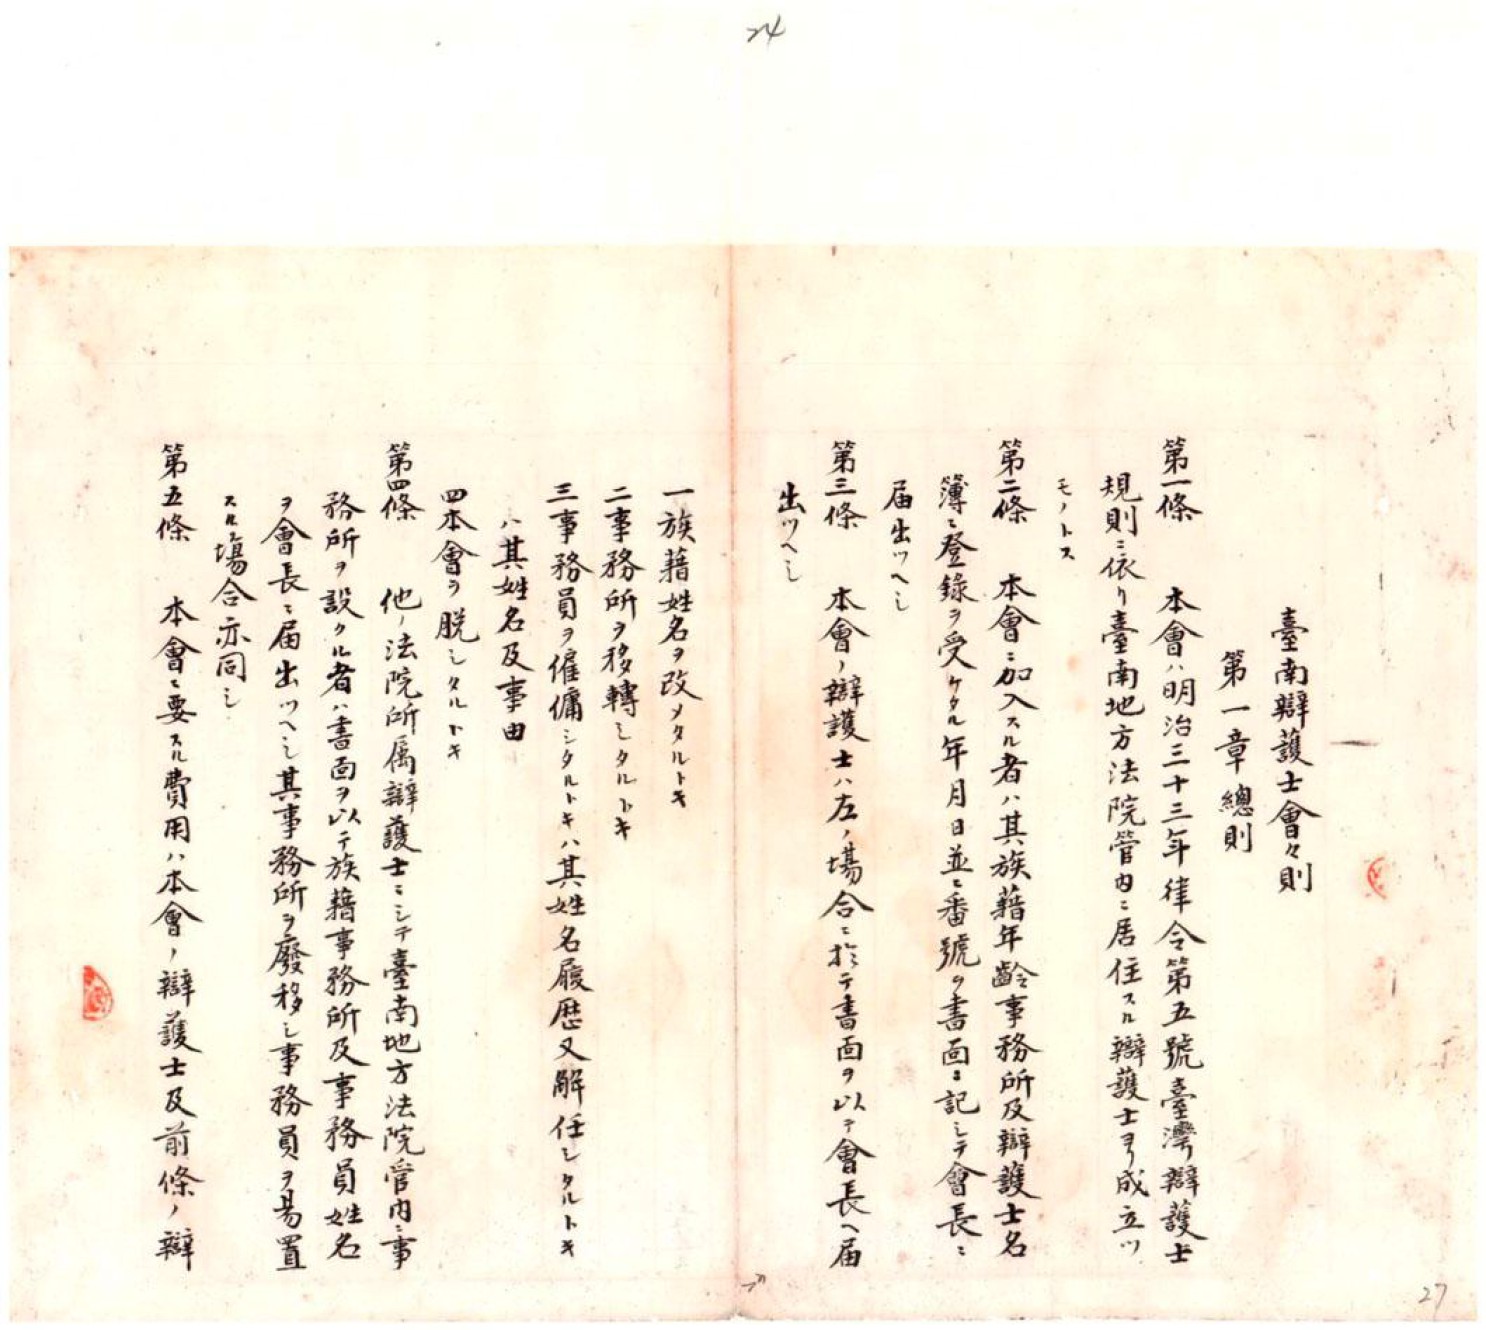 24
臺南辯護士會々則
第一章總則
第一條　本會ハ明治三十三年律令第五號臺灣辯護士
規則ニ依リ臺南地方法院管内ニ居住スル辯護士ヨリ成立ツ
モノトス
第二條　本會ニ加入スル者ハ其族藉年齡事務所及辯護士名
簿ニ登錄ヲ受ケタル年月日並ニ番號ヲ書面ニ記シテ會長ニ
届出ツヘシ
第三條　本會ノ辯護士ハ左ノ場合ニ於テ書面ヲ以テ會長ヘ届
出ツヘシ
一族藉姓名ヲ改メタルトキ
二事務所ヲ移轉シタルトキ
三事務員ヲ傭傭シタルトキハ其姓名履歴又解任シタルトキ
ハ其姓名及事由
四本會ヲ脱シタルトキ
第四條　他ノ法院所属辯護士ニシテ臺南地方法院管内ニ事
務所ヲ設クル者ハ書面ヲ以テ族藉事務所及事務員姓名
ヲ會長ニ届出ツヘシ其事務所ヲ廢移シ事務員ヲ易置
スル場合亦同シ
第五條　本會ニ要スル費用ハ本會ノ辯護士及前條ノ辯
27